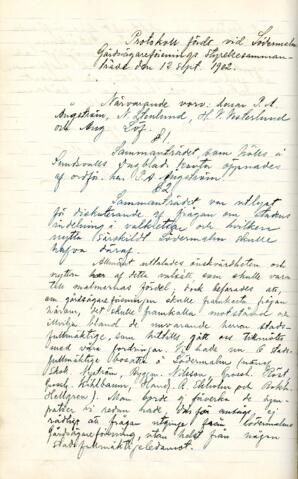 Protokoll fördt vid Södermalms
Gårdsägareförenings Styrelsesamman-
träde den 12 Sept. 1902.
Närvarande voro: herrar P. A.
Ångström, N. Stenlund, H. P. Vesterlund
och Aug. Löf.
§ 1
Sammanträdet som hölls i
Sundsvalls Dagblads öppnades
af ordf. hr. P. A. Ångström
§ 2
Sammanträdet var utlyst
för diskuterande af frågan om stadens
indelning i valkretsar och hvilken
nytta särskildt Södermalm skulle
hafva däraf.
Allmänt uttalades önskvärdheten och
nyttan häraf detta valsätt som skulle vara
till malmarnas fördel, dock befarades att,
om gårdsägareföreningen skulle framkasta frågan
härom, det skulle framkalla motstånd och
illvilja bland de nuvarande herrar stads-
fullmäktige, som hittills gått oss till mötes
med våra fordringar. Vi hade nu 6 stads-
fullmäktige bosatta å Södermalm nämligen
Skol. Nyström, Byggm. Nilsson, Gross. Röst
Kihlbaum, Hand. A. Ekholm och Bokh.
Hellgren). Man borde ej påverka de sym-
patier vi redan hade, därför ansågs ej
rådligt att frågan utginge från Södermalms
Gårdsägareförening, utan helst från någon
stadsfullmäktigeledamot.